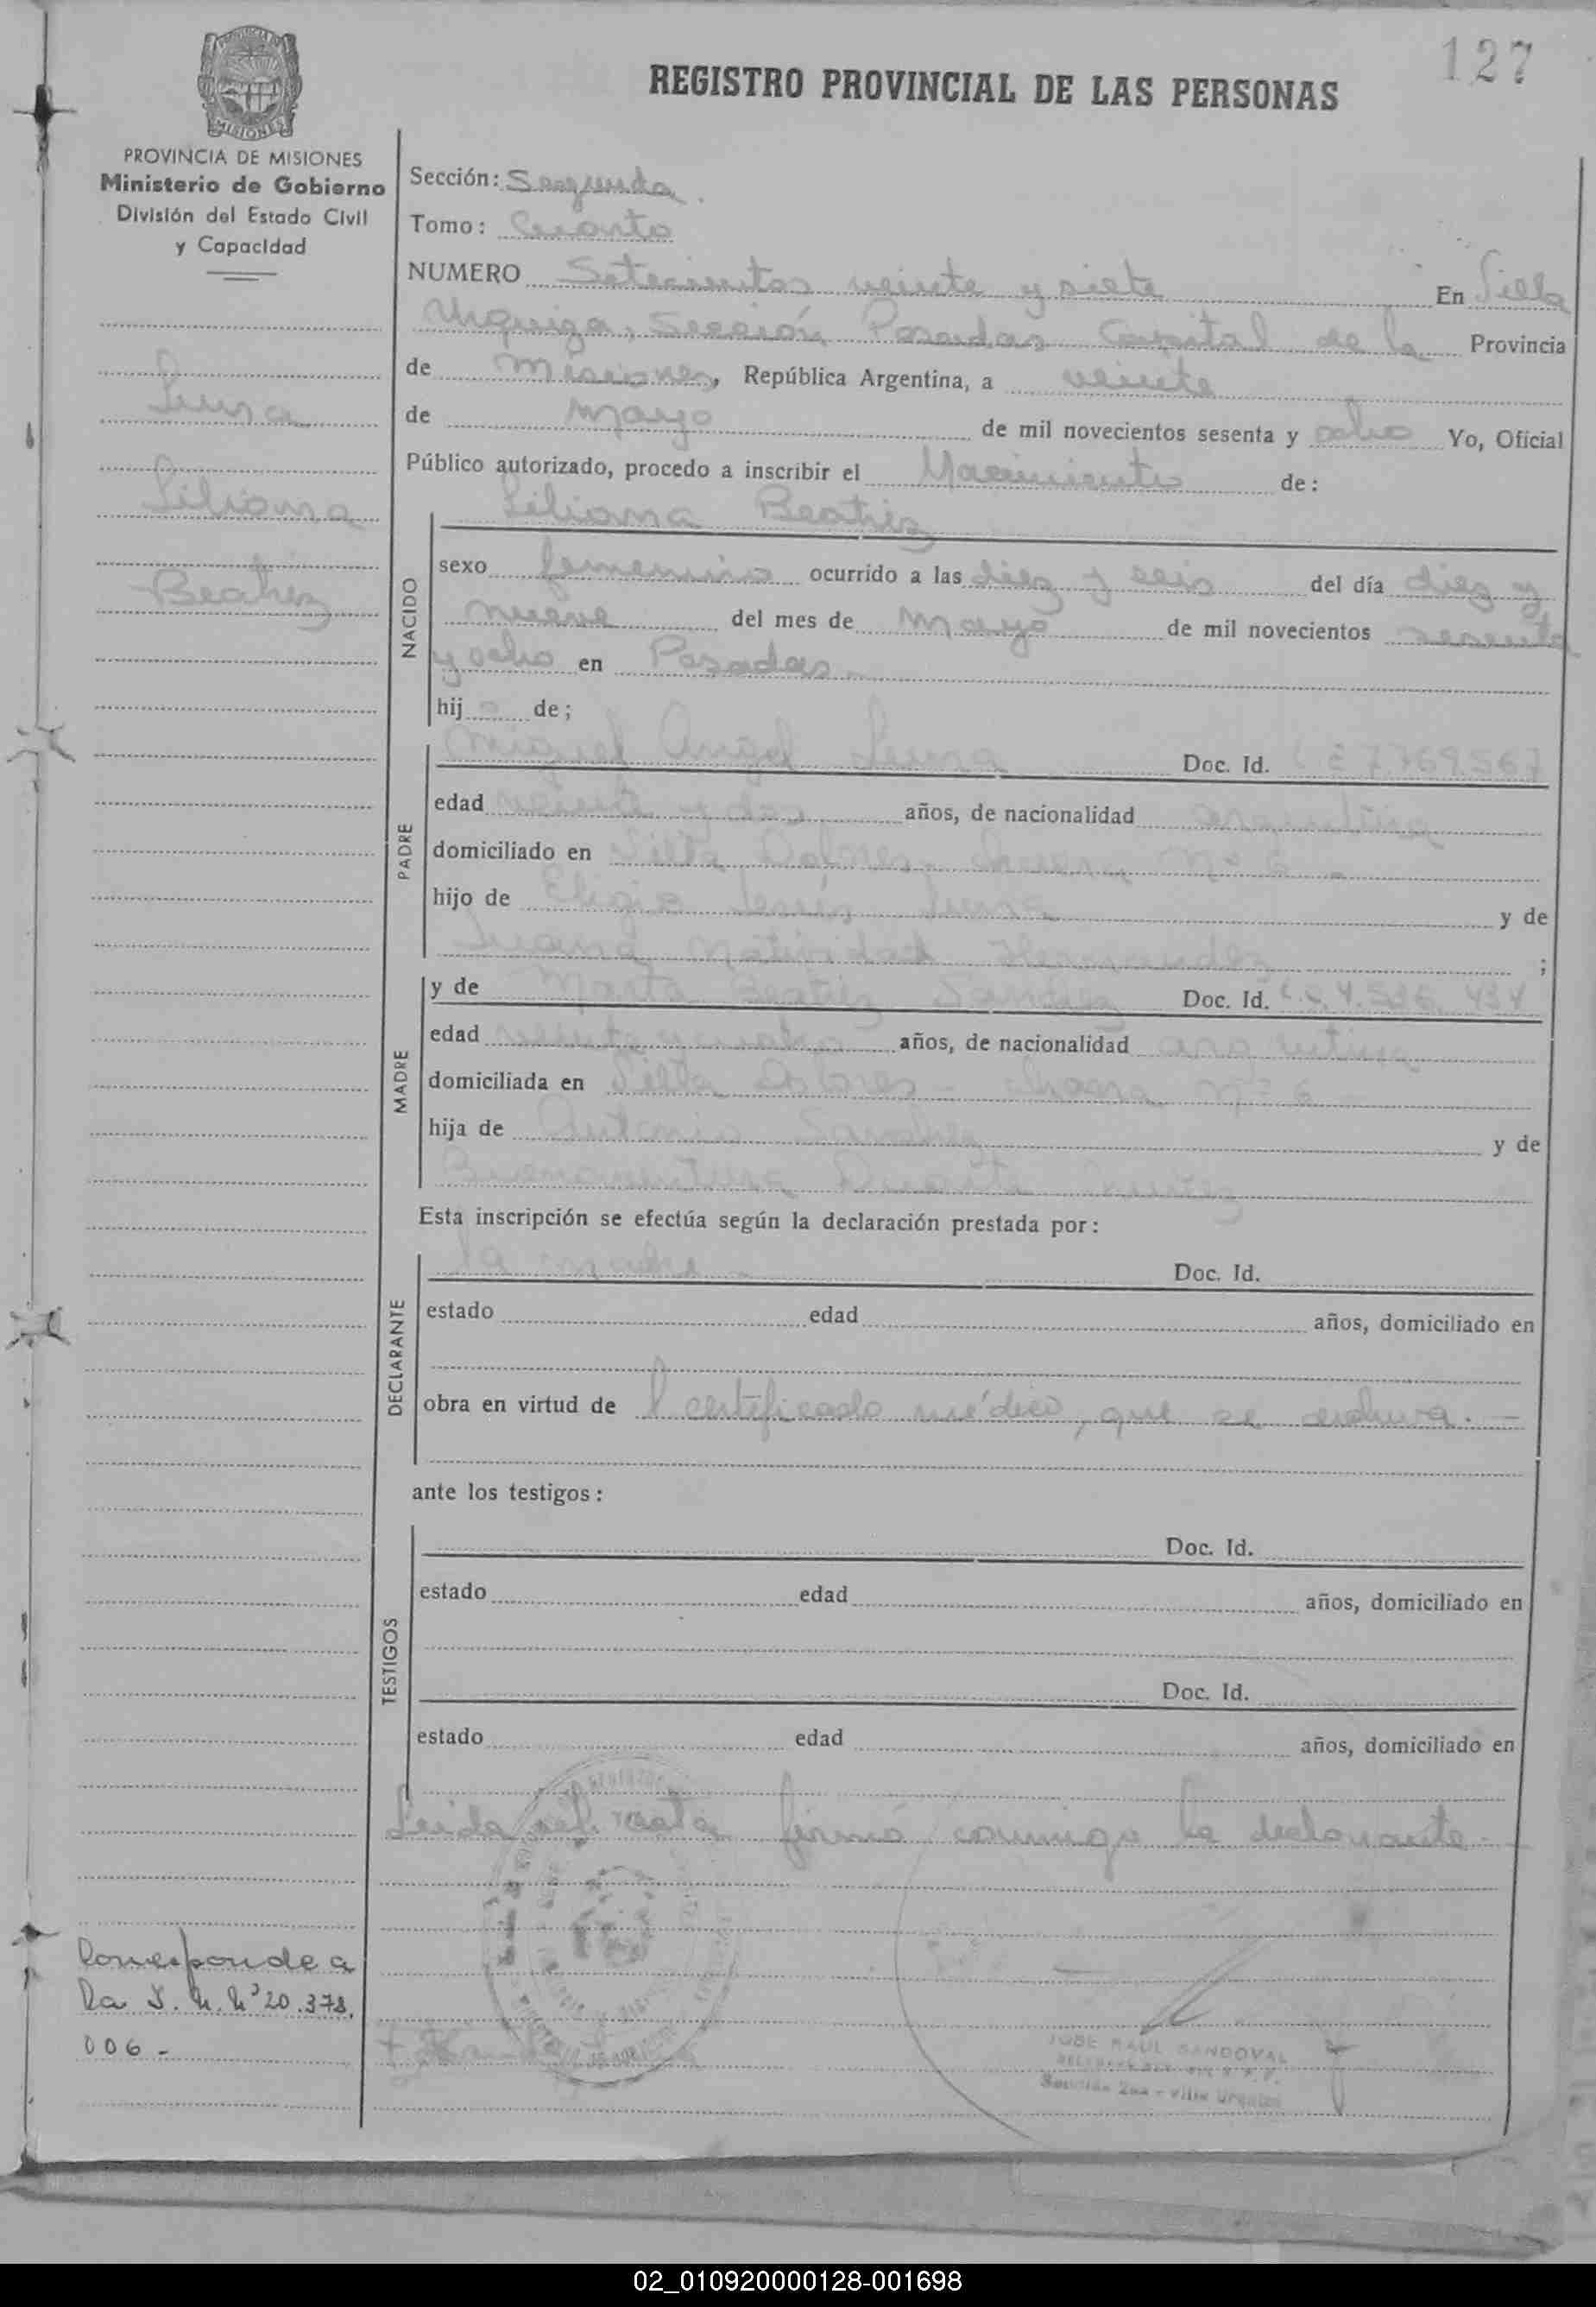 127
REGISTRO PROVINCIAL DE LAS PERSONAS
PROVINCIA DE MISIONES
Ministerio de Gobierno
División del Estado Civil
y Capacidad
Luna
Liliana
Beatriz
Sección: Segunda
Tomo: Cuarto
NUMERO Setecientos veinte y siete En Villa
Urquiza, Sección Posadas Capital de la Provincia
de Misiones, República Argentina, a veinte
de mayo de mil novecientos sesenta y ocho Yo, Oficial
Público autorizado, procedo a inscribir el Nacimiento de:
NACIDO
Liliana Beatriz
sexo femenino ocurrido a las diez y seis del día diez y
nueve del mes de mayo de mil novecientos sesenta
y ocho en Posadas
hija de;
PADRE
Miguel Angel Luna Doc. Id. L E 7.769.567
edad veinte y dos años, de nacionalidad argentina
domiciliado en Villa Dolores
hijo de Eligio Luna y de
Juana Natividad Hermandez ;
MADRE
y de Marta Beatriz Doc. Id. L.C. 4.536.434
edad años, de nacionalidad argentina
domiciliada en Villa Dolores - Nº 6
hija de Antonio y de
Buenaventura Duarte
Esta inscripción se efectúa según la declaración prestada por:
DECLARANTE
la madre Doc. Id.
estado edad años, domiciliado en
obra en virtud de l certificado médico, que se archiva.-
ante los testigos:
TESTIGOS
Doc. Id.
estado edad años, domiciliado en
Doc. Id.
estado edad años, domiciliado en
Leida el acta firmó conmigo la declarante.
Corresponde a
la I. M. Nº 20.378.
006-
JOSE RAUL SANDOVAL
Sección 2da - Villa Urquiza
02_010920000128-001698